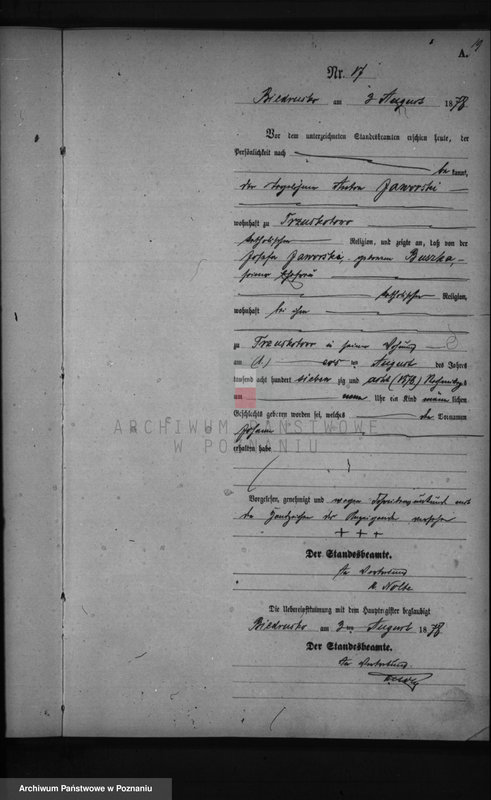 A. 19
Nr. 17
Biedrusko am 3 August 1878
Vor dem unterzeichneten Standesbeamten erschien heute, der
Persönlichkeit nach
be kannt,
der Tagelöhner Anton Jaworski
wohnhaft zu
katholischer Religion, und zeigte an, daß von der
Josefa Jaworska, geborene Buszka,
seiner Ehefrau
katholischer Religion,
wohnhaft bei ihm
zu in seiner Wohnung
am August des Jahres
tausend acht hundert sieben zig und acht (1878) Nachmittags
um neun Uhr ein Kind männ lichen
Geschlechts geboren worden sei, welches den Vornamen
Johann
erhalten habe
Vorgelesen, genehmigt und wegen Schreibensunkunde mit
den Handzeichen des Anzeigenden versehen
+ + +
Der Standesbeamte.
In Vertretung
Nolte
Die Uebereinstimmung mit dem Hauptregister beglaubigt
Biedrusko am 3 ten August 1878
Der Standesbeamte.
In Vertretung
Nolte
ARCHIWUM PAŃSTWOWE
W POZNANIU
Archiwum Państwowe w Poznaniu